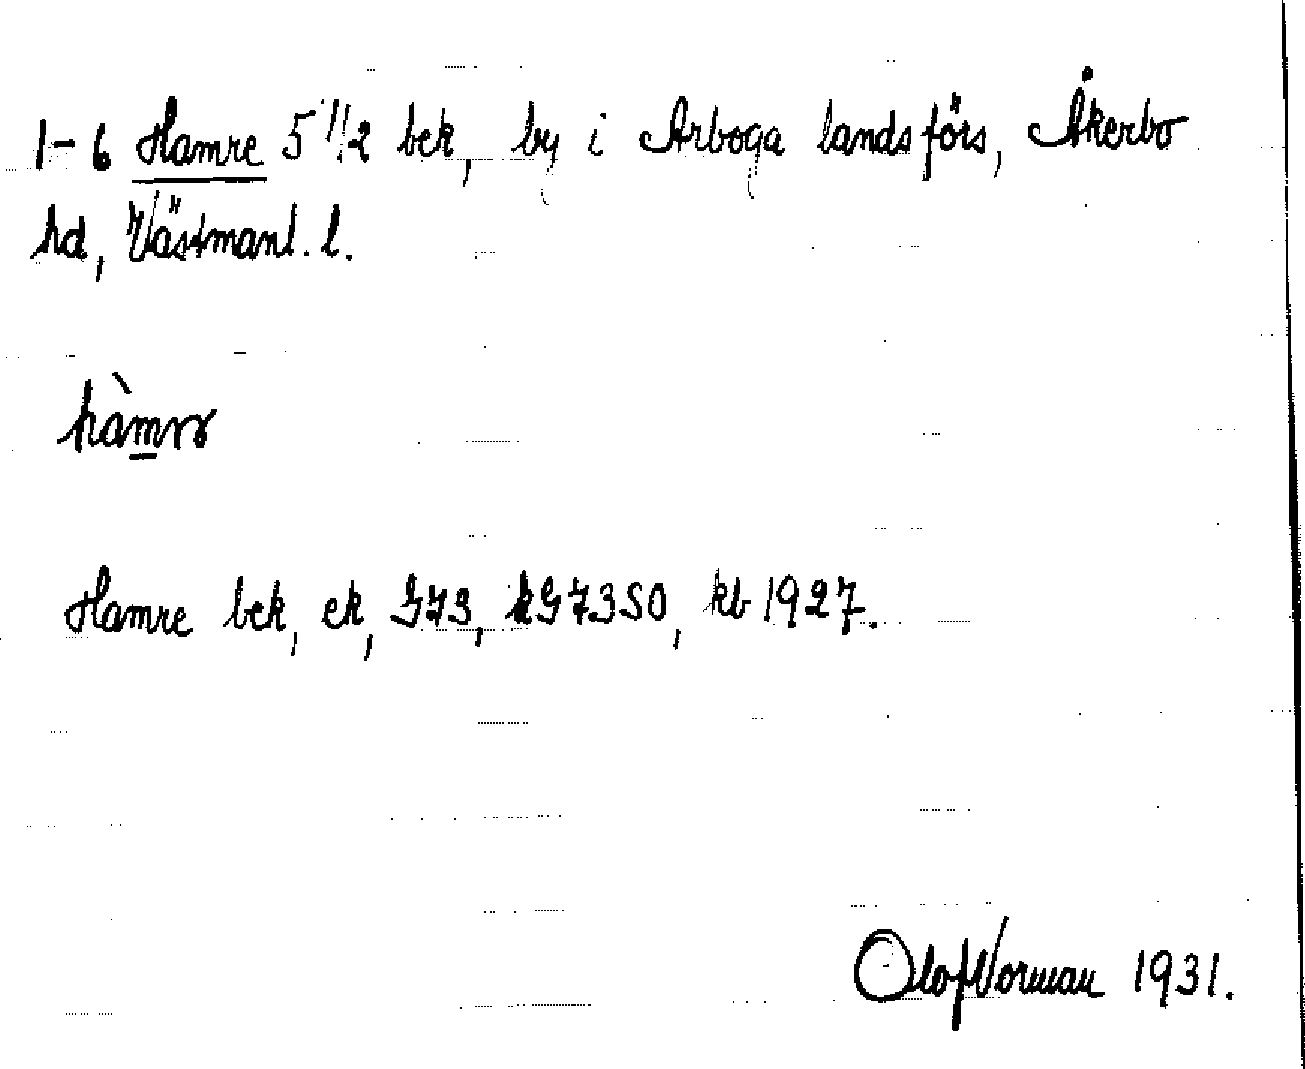 1-6 Hamre 5 1/2 bek, by i Arboga landsförs, Åkerbo
hd, Västmanl. l.
hàmrɐ
Hamre bek, ek, G73, kG73SO, kb 1927.
Olof Norman 1931.